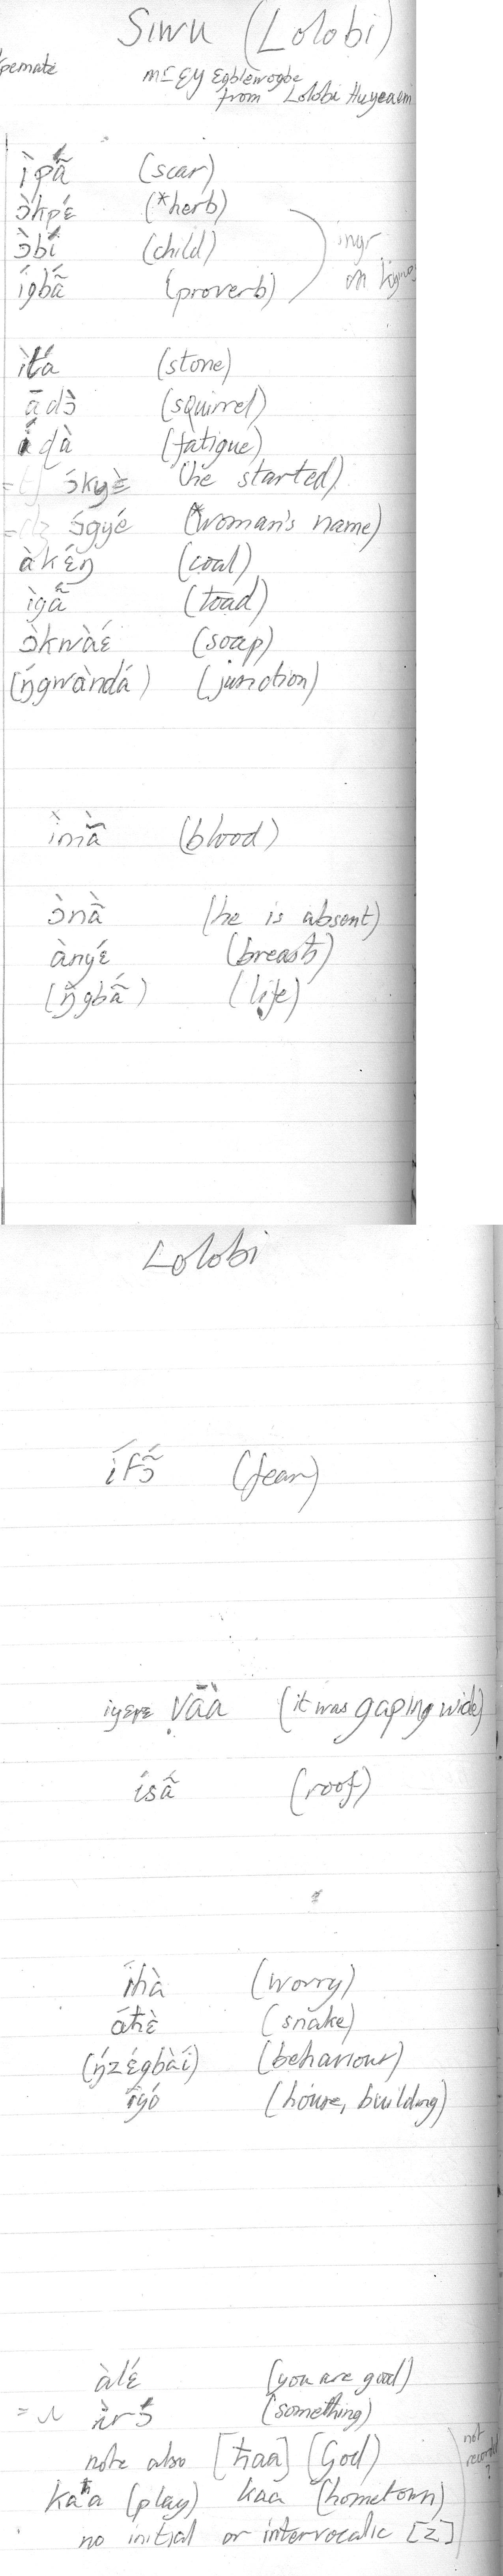 Siwu (Lolobi)
EY Egblewogbe
from Lolobi Huyeasem
ìpã́ (scar)
ɔ̀kpɛ́ (*herb)
ɔ̀bí (child)
ígbã́ (proverb)
on
ìtá (stone)
ādɔ̀ (squirrel)
ídà (fatigue)
ɔ́kyɛ̀ (he started)
ɔ́gyé (*woman's name)
àkɛ́ŋ (coal)
ìgã̌ (toad)
ɔ̀kwàɛ́ (soap)
(ŋ́gwàndá) (junction)
ìmã̀ (blood)
ɔ̀nã̀ (he is absent)
ànyɛ́ (breast)
(ŋ́gbã́) (life)
Lolobi
ífɔ̃́ (fear)
iyɛrɛ vãà (it was gaping wide)
ísã́ (roof)
íhà (worry)
áħɛ̀ (snake)
(ŋ́zɛ́gbàí) (behaviour)
íyó (house, building)
àlɛ́ (you are good)
= ìrɔ̃́ (something)
note also [ħaa] (God)
(play) kaa (hometown)
no initial or intervocalic [z]
not
record
?